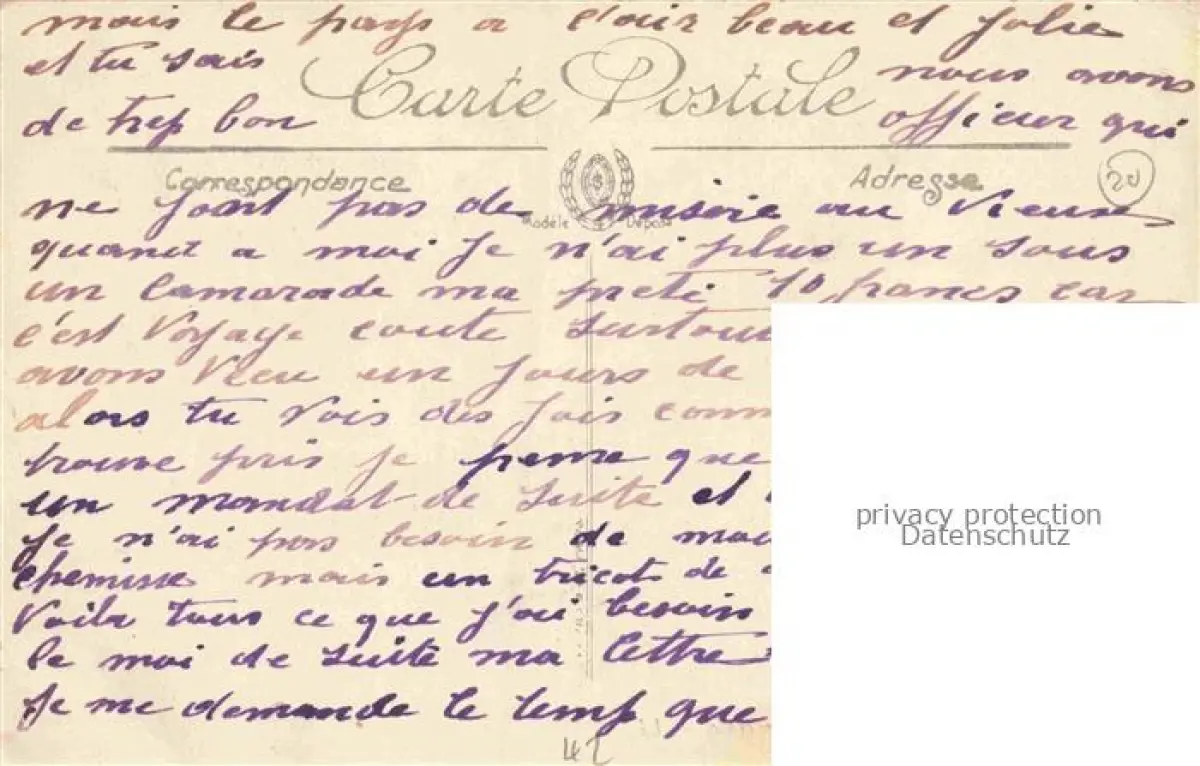 mais le pays a l'air beau et jolie
et tu sais nous avons
Carte Postale
de trep bon officier qui
Correspondance Adresse
20
ne font pas de misere au vieux
Modèle Déposé
quant a moi je n'ai plus un sous
un camarade ma preté 10 francs car
c'est voyage coute surtout
avons vecu un jours de
alors tu vois des fois comm
trouve pris je pense que
un mandat de suite et
je n'ai pas besoin de mou
chemisse mais un tricot de
voila tous ce que j'ai besoin
le moi de suite ma lettre
je me demande le temp que
42
privacy protection
Datenschutz